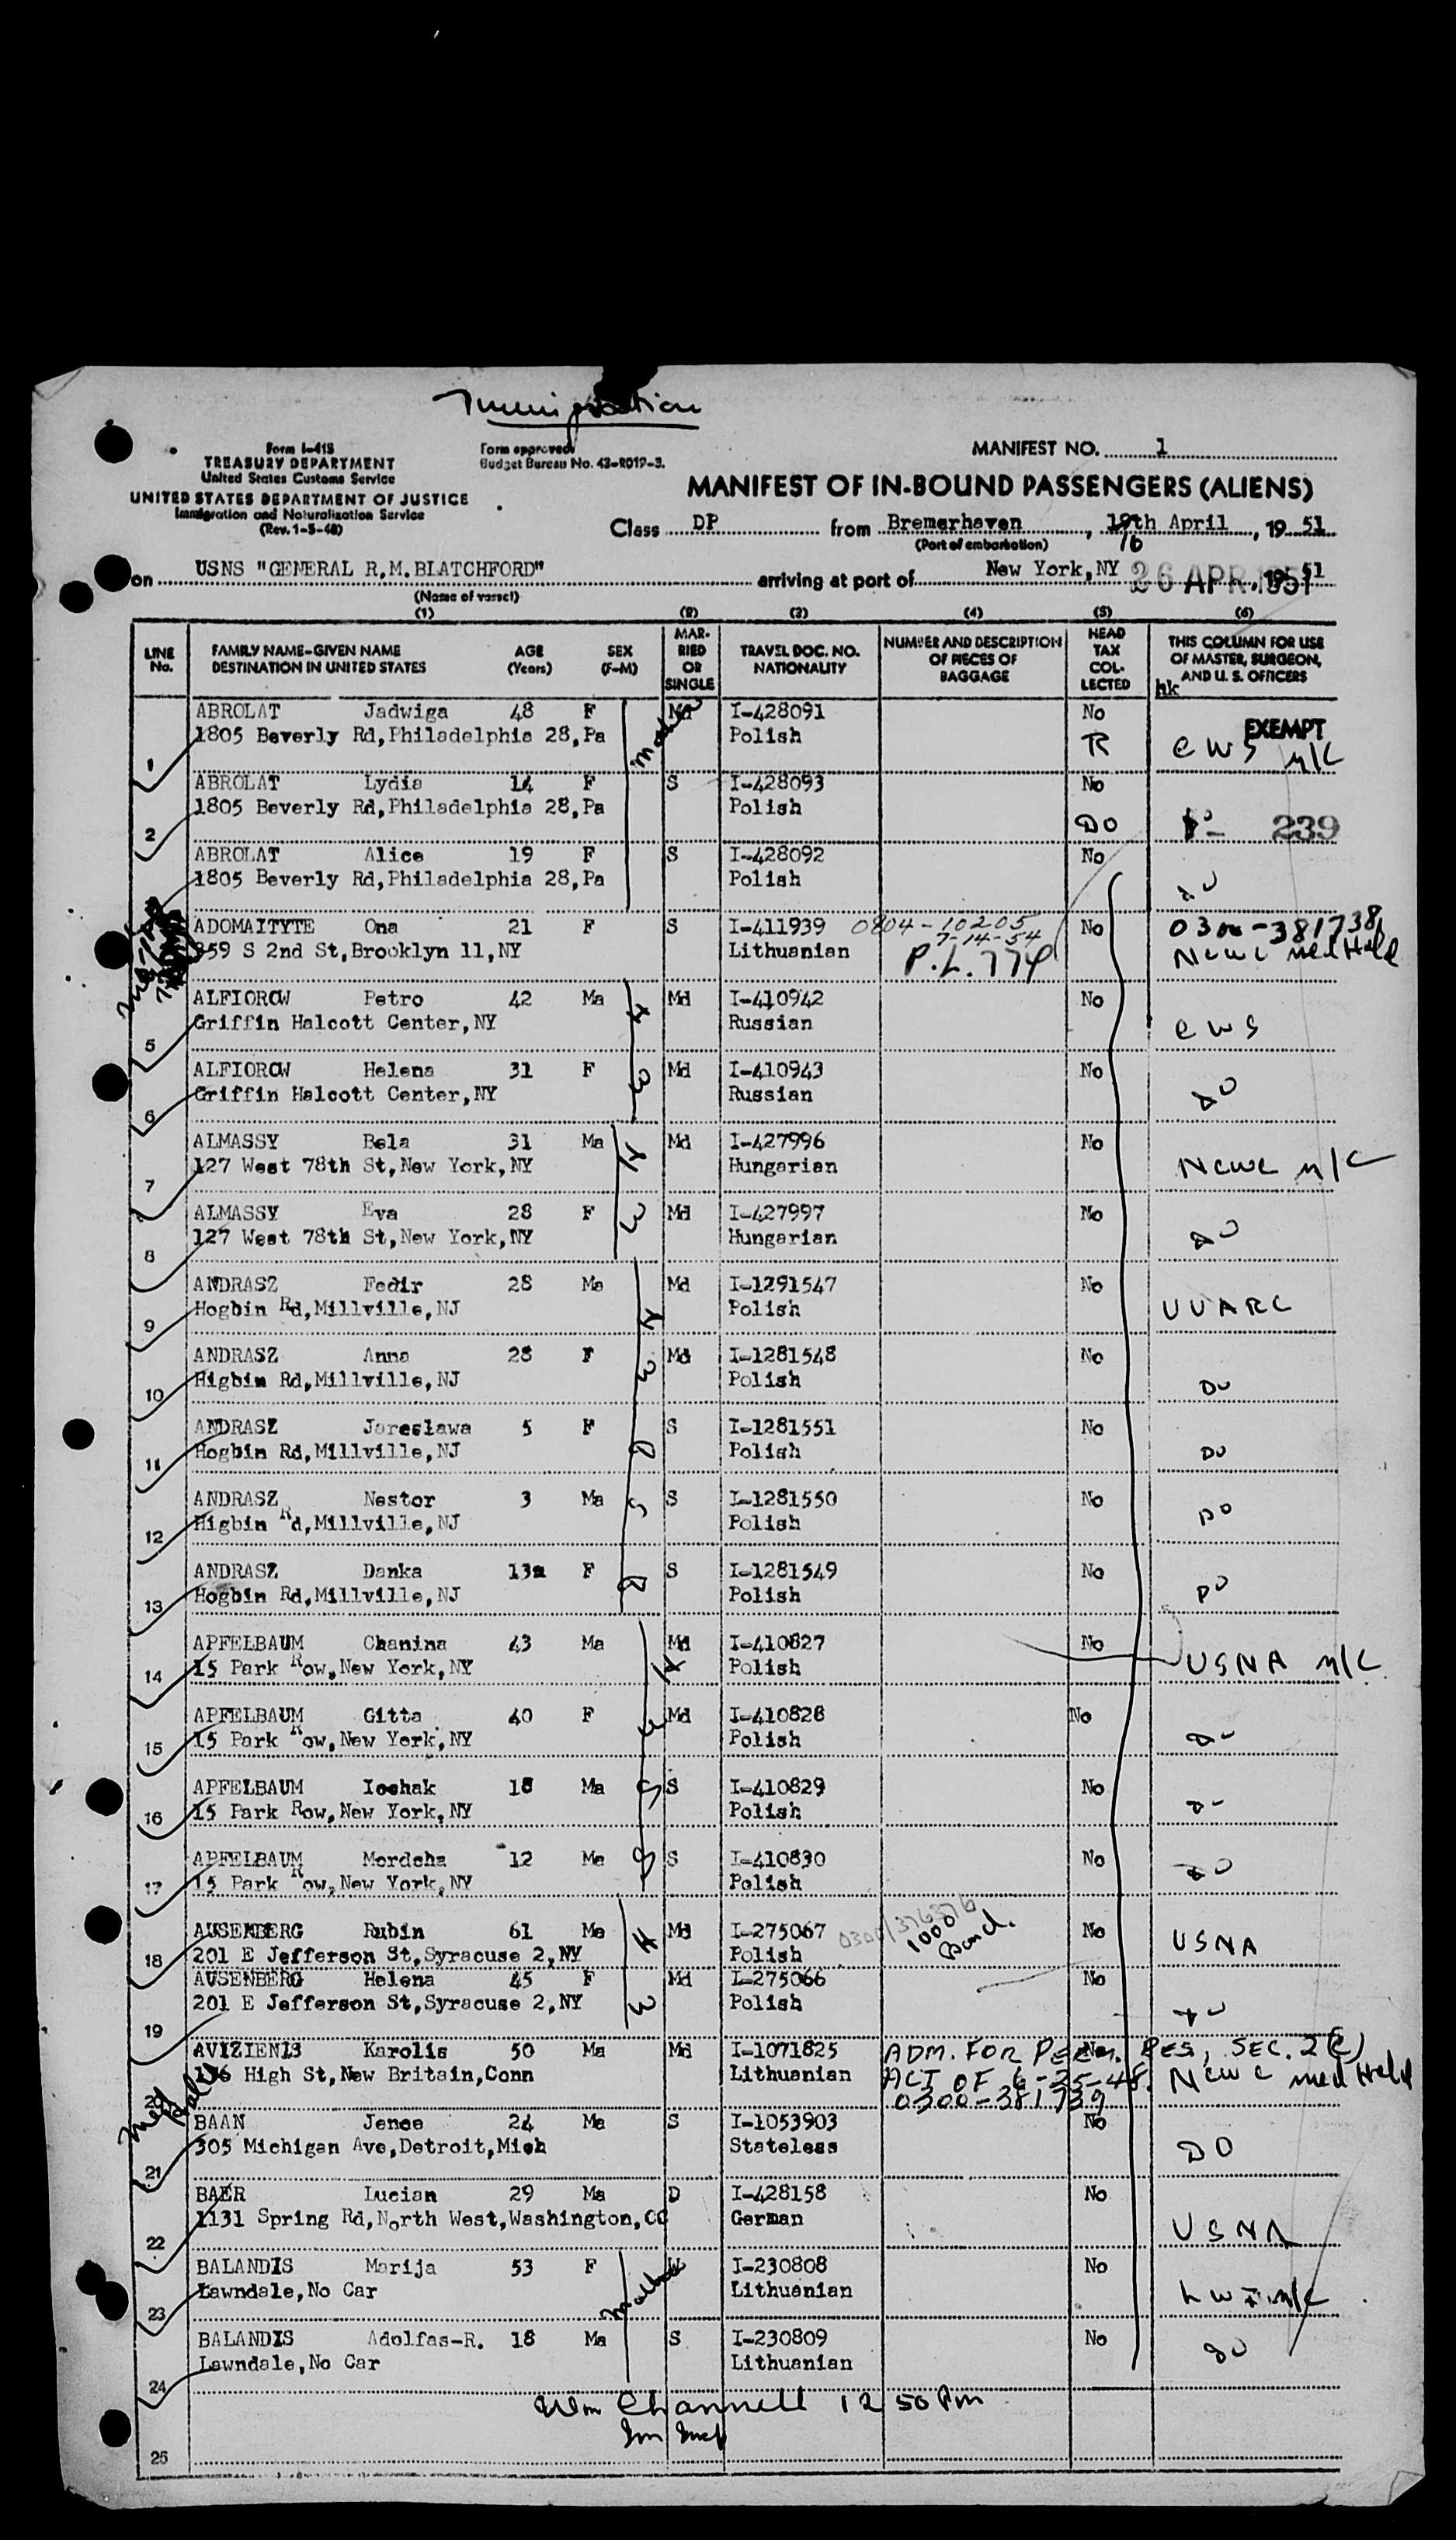 Immigration
Form I-415
TREASURY DEPARTMENT
United States Customs Service
UNITED STATES DEPARTMENT OF JUSTICE
Immigration and Naturalization Service
(Rev. 1-5-48)
Form approved
Budget Bureau No. 43-R019-3.
MANIFEST NO. 1
MANIFEST OF IN-BOUND PASSENGERS (ALIENS)
Class DP from Bremerhaven, 19th April, 19 51
(Port of embarkation) 16
on USNS "GENERAL R.M.BLATCHFORD" arriving at port of New York,NY 26 APR 1951, 19 51
(Name of vessel)
(1) (2) (3) (4) (5) (6)
LINE No. FAMILY NAME-GIVEN NAME DESTINATION IN UNITED STATES AGE (Years) SEX (F-M) MARRIED OR SINGLE TRAVEL DOC. NO. NATIONALITY NUMBER AND DESCRIPTION OF PIECES OF BAGGAGE HEAD TAX COLLECTED THIS COLUMN FOR USE OF MASTER, SURGEON, AND U. S. OFFICERS
hk
ABROLAT Jadwiga 48 F Md I-428091 No EXEMPT
1 1805 Beverly Rd,Philadelphia 28,Pa Mother Polish R CWS M/C
ABROLAT Lydia 14 F S I-428093 No
2 1805 Beverly Rd,Philadelphia 28,Pa Polish DO 239
ABROLAT Alice 19 F S I-428092 No
1805 Beverly Rd,Philadelphia 28,Pa Polish DO
ADOMAITYTE Ona 21 F S I-411939 0804-10205 No 0300-381738
7-14-54
859 S 2nd St,Brooklyn 11,NY Lithuanian P.L.774 NCWC Med Held
ALFIOROW Petro 42 Ma H Md I-410942 No
5 Griffin Halcott Center,NY Russian CWS
ALFIOROW Helena 31 F W Md I-410943 No
6 Griffin Halcott Center,NY Russian DO
ALMASSY Bela 31 Ma H Md I-427996 No
7 127 West 78th St,New York,NY Hungarian NCWC M/C
ALMASSY Eva 28 F W Md I-427997 No
8 127 West 78th St,New York,NY Hungarian DO
ANDRASZ Fedir 28 Ma H Md I-1291547 No
9 Hogbin Rd,Millville,NJ Polish UUARC
ANDRASZ Anna 28 F W Md I-1281548 No
10 Higbin Rd,Millville,NJ Polish DO
ANDRASZ Jaroslawa 5 F D S I-1281551 No
11 Hogbin Rd,Millville,NJ Polish DO
ANDRASZ Nestor 3 Ma S S I-1281550 No
12 Higbin Rd,Millville,NJ Polish DO
ANDRASZ Danka 13m F D S I-1281549 No
13 Hogbin Rd,Millville,NJ Polish DO
APFELBAUM Chanina 43 Ma H Md I-410827 No
14 15 Park Row,New York,NY Polish USNA M/C
APFELBAUM Gitta 40 F W Md I-410828 No
15 15 Park Row,New York,NY Polish DO
APFELBAUM Icchak 18 Ma S S I-410829 No
16 15 Park Row,New York,NY Polish DO
APFELBAUM Mordcha 12 Ma S S I-410830 No
17 15 Park Row,New York,NY Polish DO
AUSENBERG Rubin 61 Ma H Md I-275067 0300/376376 1000 Bond. No
18 201 E Jefferson St,Syracuse 2,NY Polish USNA
AUSENBERG Helena 45 F W Md I-275066 No
19 201 E Jefferson St,Syracuse 2,NY Polish DO
AVIZIENIS Karolis 50 Ma Md I-1071825 ADM. FOR PERM. RES, SEC. 2(c) No
20 High St,New Britain,Conn Lithuanian ACT OF 6-25-48. NCWC Med Held
Med Held 0300-381739
BAAN Jence 24 Ma S I-1053903 No
21 305 Michigan Ave,Detroit,Mich Stateless DO
BAER Lucian 29 Ma D I-428158 No
22 1131 Spring Rd,North West,Washington,CC German USNA
BALANDIS Marija 53 F W I-230808 No
23 Lawndale,No Car Mother Lithuanian LWF M/C
BALANDIS Adolfas-R. 18 Ma S I-230809 No
24 Lawndale,No Car Lithuanian DO
Wm Channell 12 50 Pm
Im Insp
25